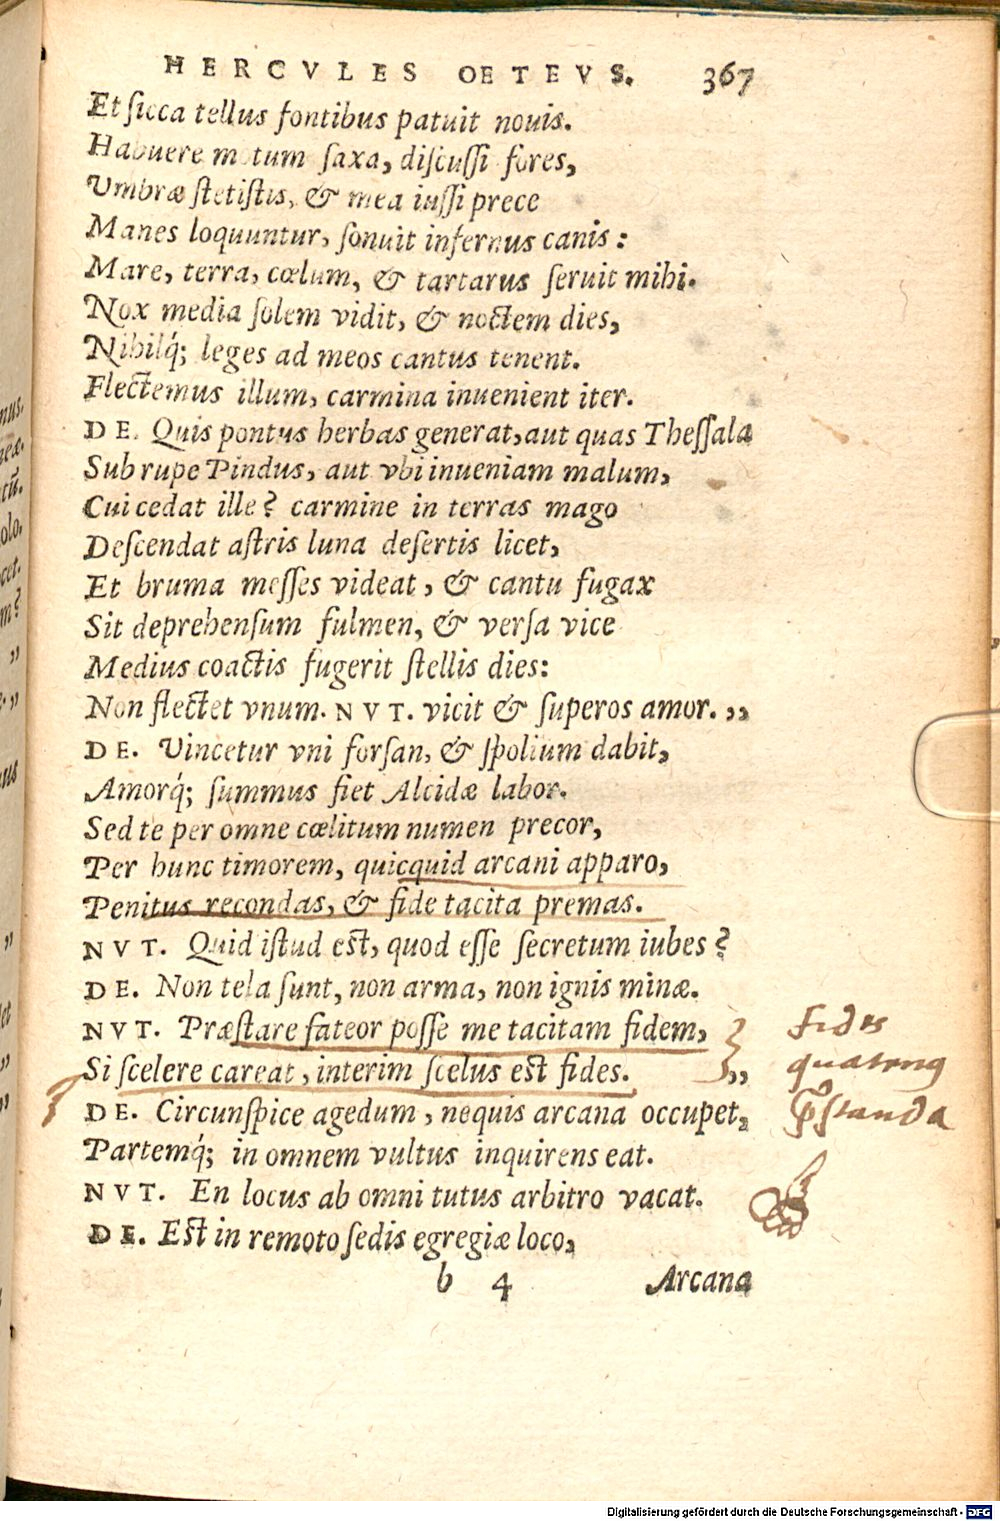 HERCVLES OETEVS. 367
Et ſicca tellus fontibus patuit nouis.
Habuere motum ſaxa, diſcuſſi fores,
Vmbræ ſtetiſtis, & mea iuſſi prece
Manes loquuntur, ſonuit infernus canis:
Mare, terra, cœlum, & tartarus ſeruit mihi.
Nox media ſolem vidit, & noctem dies,
Nihilq́; leges ad meos cantus tenent.
Flectemus illum, carmina inuenient iter.
DE. Quis pontus herbas generat, aut quas Theſſala
Sub rupe Pindus, aut vbi inueniam malum,
Cui cedat ille? carmine in terras mago
Deſcendat aſtris luna deſertis licet,
Et bruma meſſes videat, & cantu fugax
Sit deprehenſum fulmen, & verſa vice
Medius coactis fugerit ſtellis dies:
Non flectet vnum. NVT. vicit & ſuperos amor. „
DE. Vincetur vni forſan, & ſpolium dabit,
Amorq́; ſummus fiet Alcidæ labor.
Sed te per omne cœlitum numen precor,
Per hunc timorem, quicquid arcani apparo,
Penitus recondas, & fide tacita premas.
NVT. Quid iſtud eſt, quod eſſe ſecretum iubes?
DE. Non tela ſunt, non arma, non ignis minæ.
NVT. Præſtare fateor poſſe me tacitam fidem,
Si ſcelere careat, interim ſcelus eſt fides. „
DE. Circunſpice agedum, nequis arcana occupet,
Partemq́; in omnem vultus inquirens eat.
NVT. En locus ab omni tutus arbitro vacat.
DE. Eſt in remoto ſedis egregiæ loco,
b 4 Arcana
nus.
eæ.
tũ.
olo,
cet.
m?
„
„
nus
„
let
„
„
Fides
p̃ſtanda
Digitalisierung gefördert durch die Deutsche Forschungsgemeinschaft - DFG